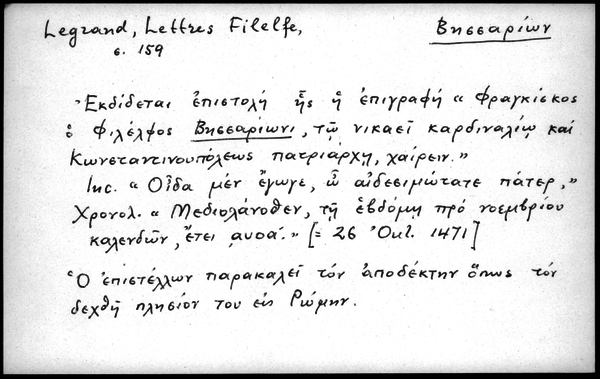 Legrand, Lettres Filelfe, Βησσαρίων
σ. 159
Ἐκδίδεται ἐπιστολή ἧς ἡ ἐπιγραφή « Φραγκίσκος
ὁ Φιλέλφος Βησσαρίωνι, τῷ νικαεῖ καρδιναλίῳ καί
Κωνσταντινουπόλεως πατριάρχῃ, χαίρειν. »
Inc. « Οἶδα μέν ἔγωγε, ὦ αἰδεσιμώτατε πάτερ, »
Χρονολ. « Μεδιολάνοθεν, τῇ ἑβδόμῃ πρό νοεμβρίου
καλενδῶν, ἔτει ͵αυοα΄. » [= 26 Ὀκτ. 1471]
Ὁ ἐπιστέλλων παρακαλεῖ τόν ἀποδέκτην ὅπως τόν
δεχθῇ πλησίον του εἰς Ρώμην.